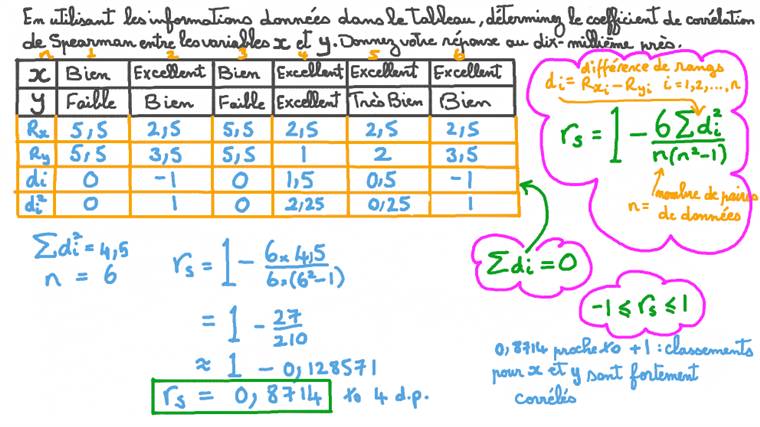 En utilisant les informations données dans le tableau, déterminez le coefficient de corrélation
de Spearman entre les variables x et y. Donnez votre réponse au dix-millième près.
n 1 2 3 4 5 6
x Bien Excellent Bien Excellent Excellent Excellent
y Faible Bien Faible Excellent Très Bien Bien
Rx 5,5 2,5 5,5 2,5 2,5 2,5
Ry 5,5 3,5 5,5 1 2 3,5
di 0 -1 0 1,5 0,5 -1
di² 0 1 0 2,25 0,25 1
différence de rangs
di = Rxi - Ryi i = 1,2,...,n
rs = 1 - 6∑di² / n(n²-1)
n = nombre de paires
de données
∑di² = 4,5
n = 6
rs = 1 - 6×4,5 / 6×(6²-1)
= 1 - 27/210
≈ 1 - 0,128571
rs = 0,8714 to 4 d.p.
∑di = 0
-1 ⩽ rs ⩽ 1
0,8714 proche to +1 : classements
pour x et y sont fortement
corrélés